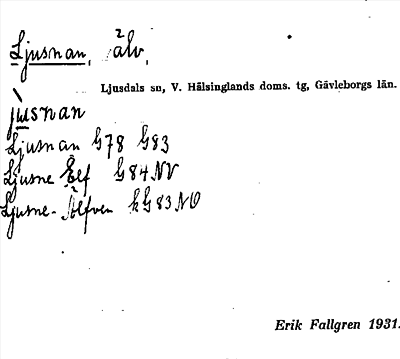 Ljusnan, älv,
Ljusdals sn, V. Hälsinglands doms. tg, Gävleborgs län.
jùsnan
Ljusnan G78 G83
Ljusne Elf G84NV
Ljusne-Älfven kG83NO
Erik Fallgren 1931.